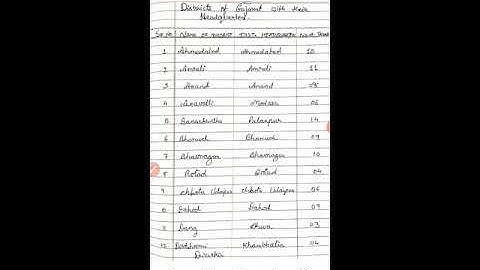 Districts of Gujarat With their
Headquarters.
Sr.No Name of District Dist. Headquarters No. of
1 Ahmedabad Ahmedabad 10
2 Amreli Amreli 11
3 Anand Anand 08
4 Aravalli Modasa 06
5 Banaskantha Palanpur 14
6 Bharuch Bharuch 09
7 Bhavnagar Bhavnagar 10
8 Botad Botad 04
9 Chhota Udaipur Chhota Udaipur 06
Dahod Dahod 09
Dang Ahwa 03
12 Devbhumi Khambhalia 04
Dwarka